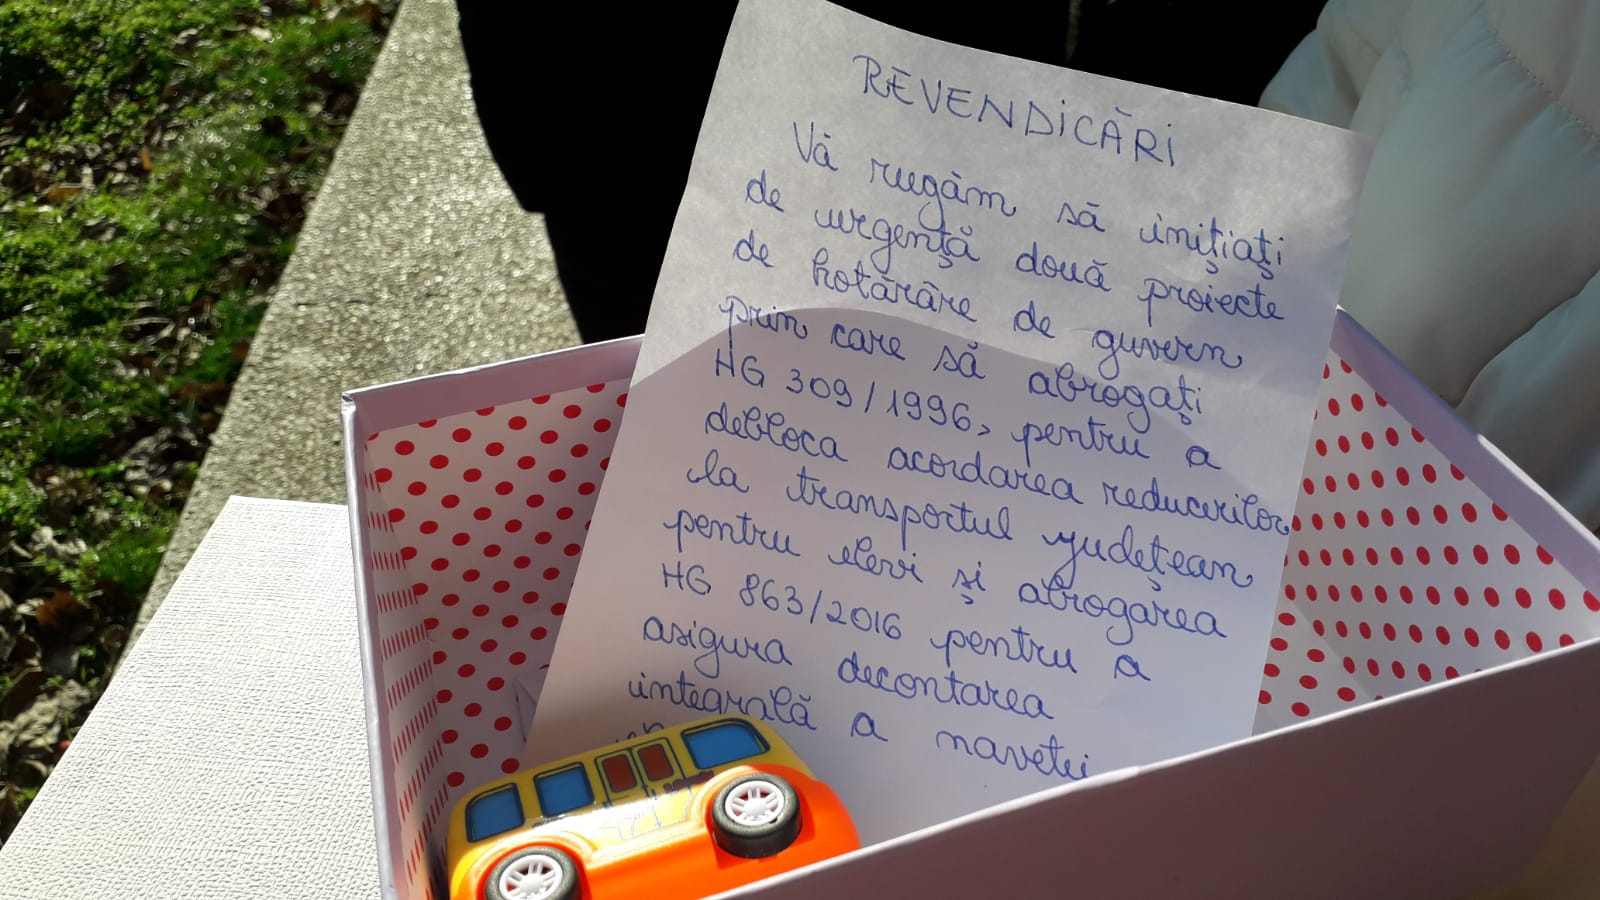 REVENDICĂRI
Vă rugăm să inițiați
de urgență două proiecte
de hotărâre de guvern
prin care să abrogați
HG 309/1996, pentru a
debloca acordarea reducerilor
la transportul județean
pentru elevi și abrogarea
HG 863/2016 pentru a
asigura decontarea
integrală a navetei